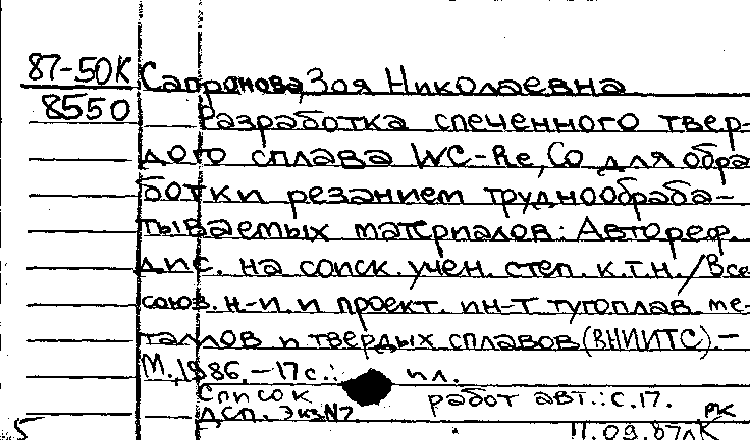 87-50К Сапронова, Зоя Николаевна
8550 Разработка спеченного твер-
дого сплава WC-Re, Co для обра
ботки резанием труднообраба-
тываемых материалов: Автореф.
дис. на соиск. учен. степ. к.т.н. / Все
союз. н-и. и проект. ин-т тугоплав. ме-
таллов и твердых сплавов (ВНИИТС). –
М., 1986. – 17 с.: ил.
Список работ авт.: с. 17.
ДСП. Экз N7 РК
5 11.09.87